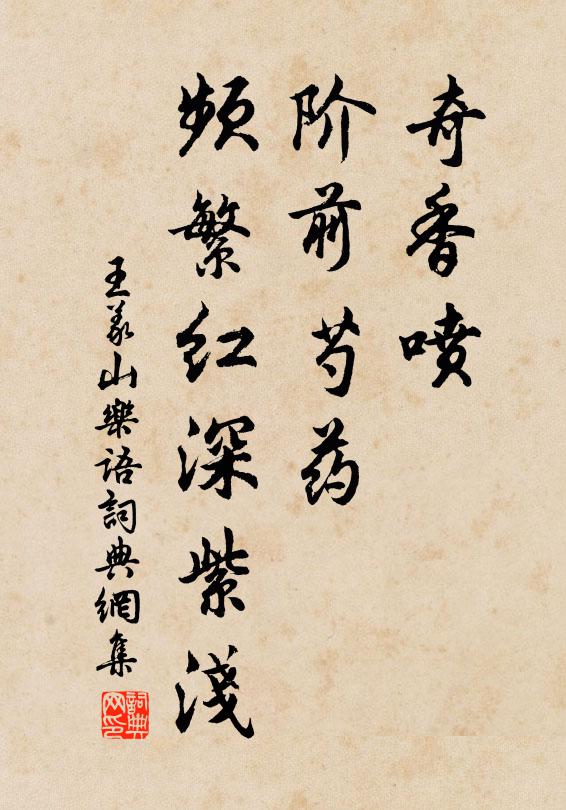 奇香喷
阶前芍药
频繁红深紫淺
王義山樂語詞典網集
詞典网印